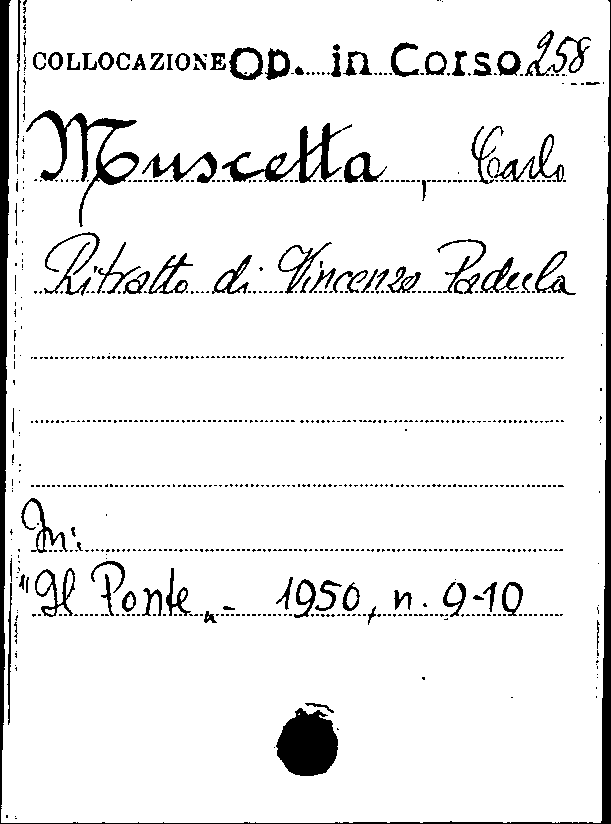 COLLOCAZIONE Op. in Corso 258
Muscetta, Carlo
Ritratto di Vincenzo Padula
In:
"Il Ponte„ - 1950, n. 9-10